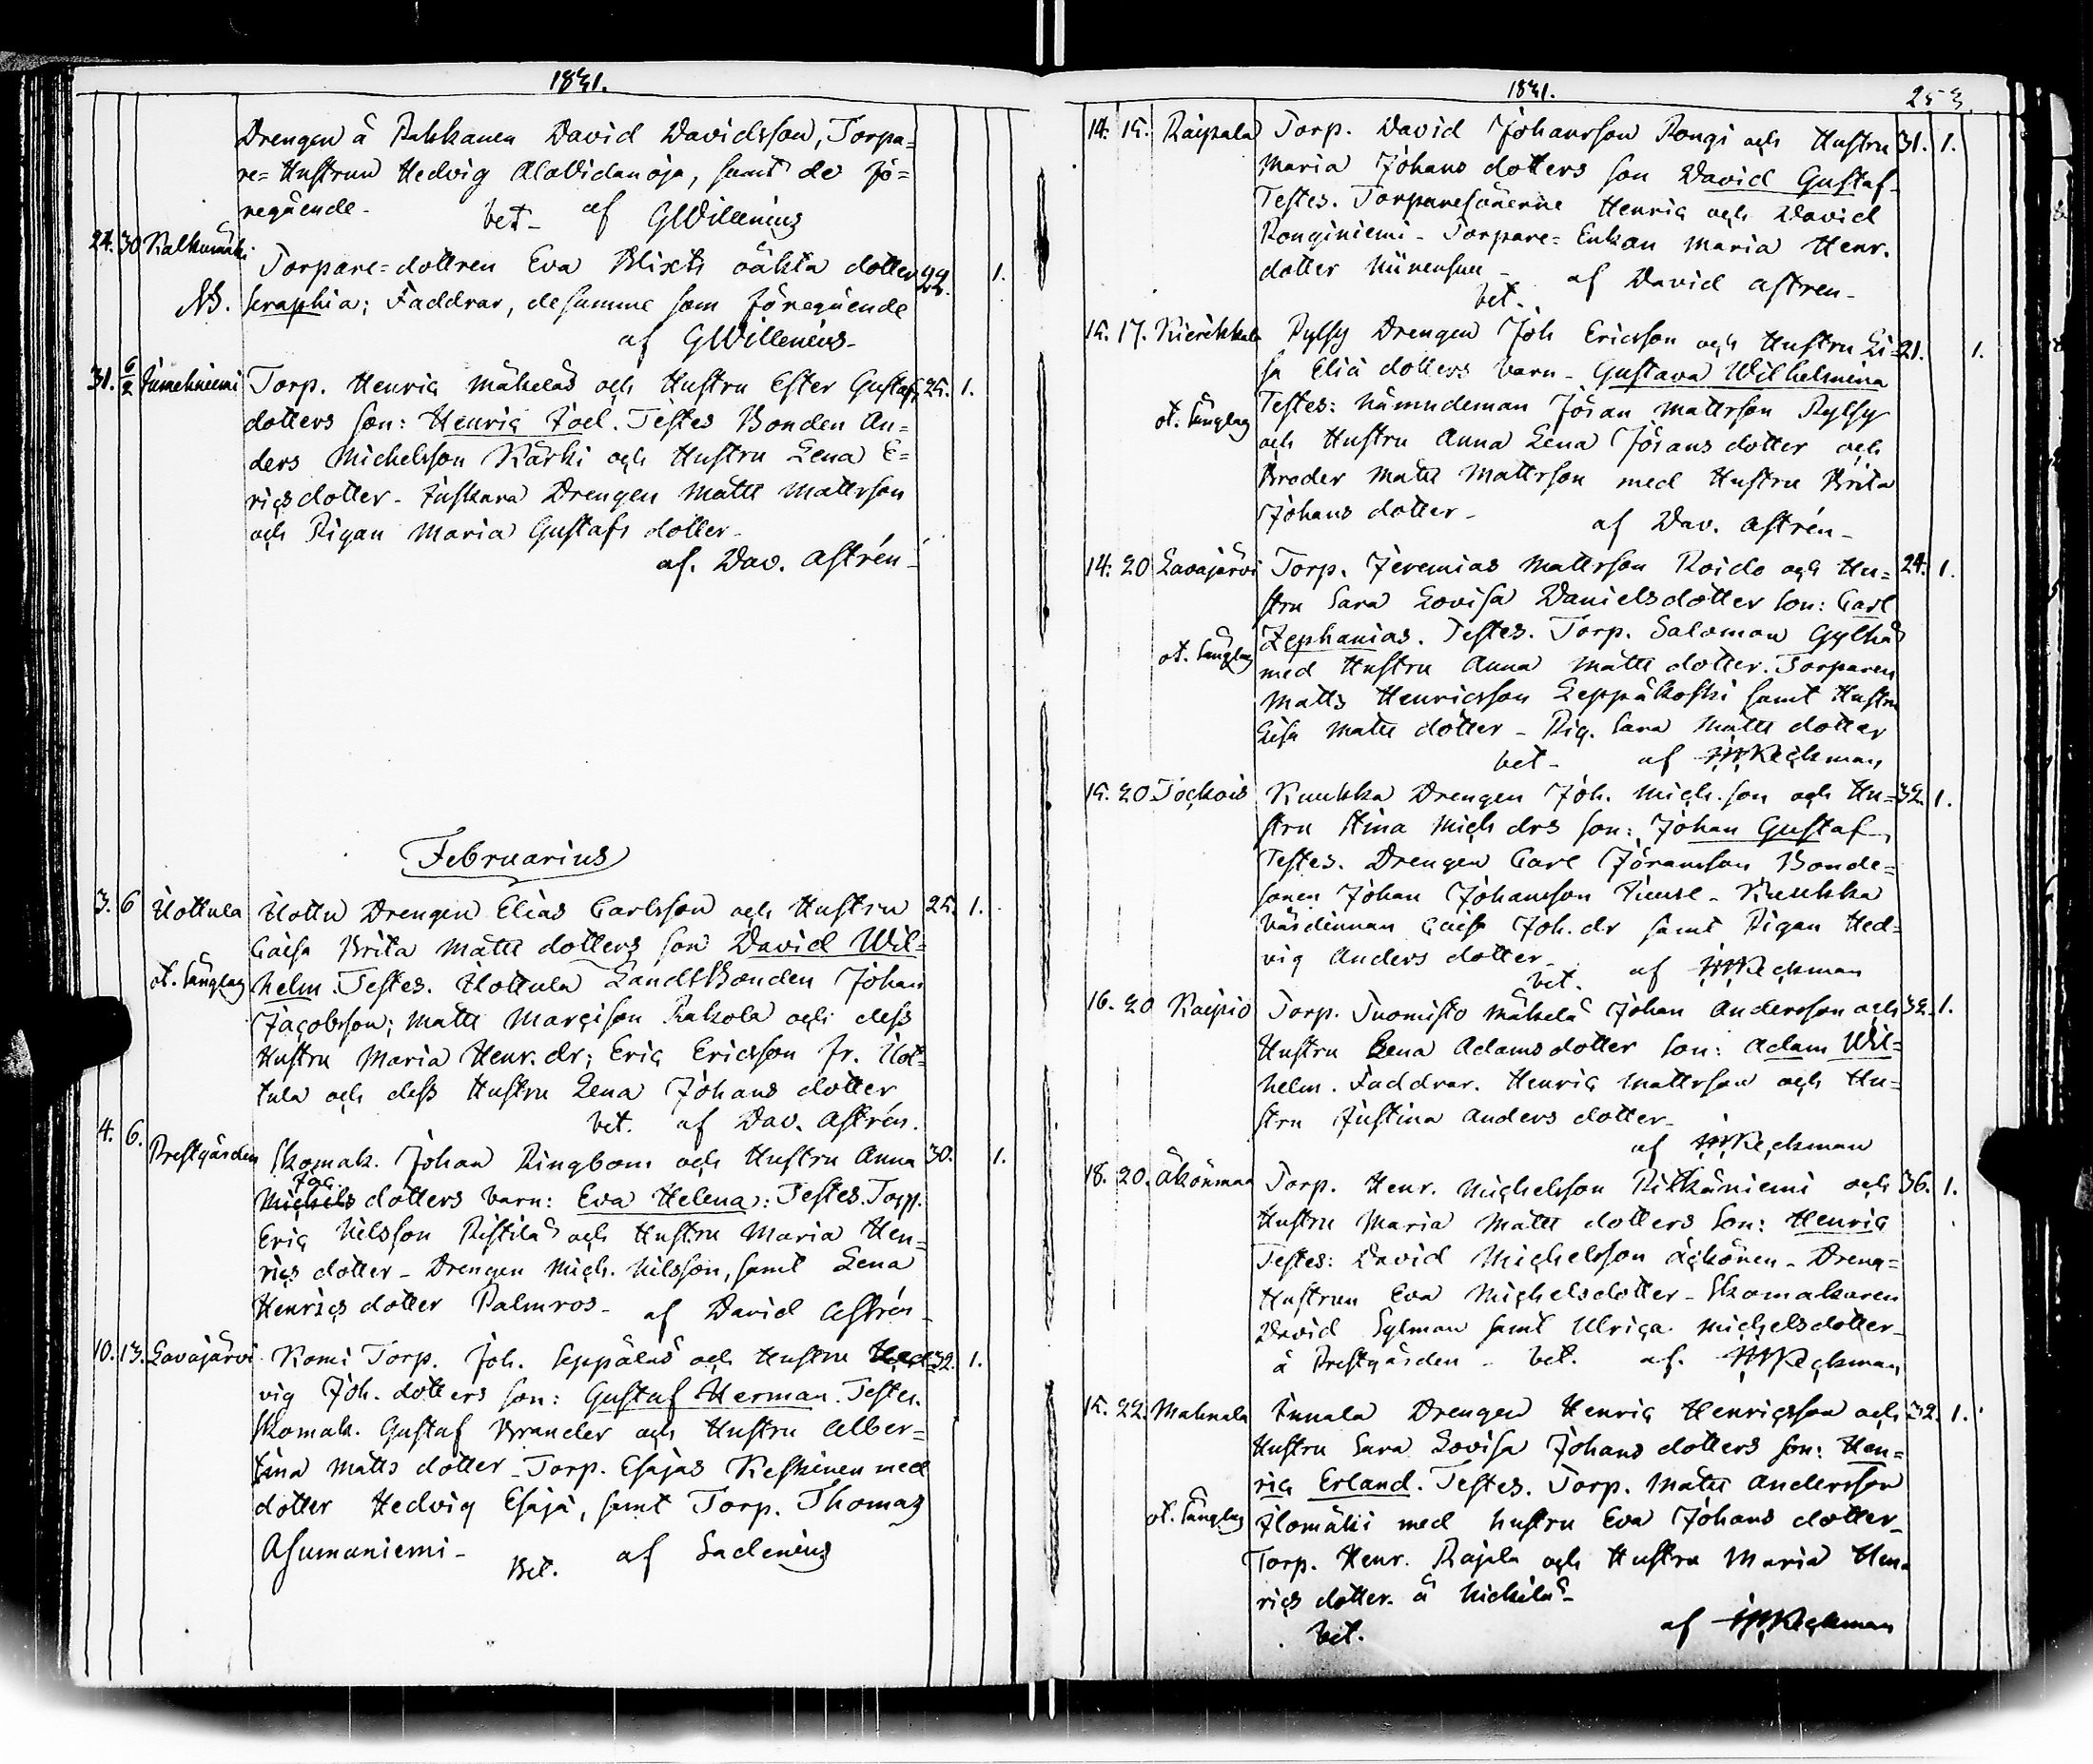 1831.
Drengen å Pukkanen David Davidsson, Torpa=
re=Hustrun Hedvig AlaVidanoja, samt de fö=
regående. bet. af GWillenius
24. 30 Kalkunmäki Torpare=dottren Eva Blixts oäkta dotter 22. 1.
NB. Seraphia; Faddrar, desamme som föregående
af GWillenius.
31. 6/2 Jumehniemi Torp. Henric Mäkeläs och Hustru Ester Gustafs 25. 1.
dotters son: Henric Joel. Testes Bonden An=
ders Michelsson Kärki och Hustru Lena E=
ricsdotter. Juskara Drengen Matts Mattsson
och Pigan Maria Gustafs dotter.
af. Dav. Astrén.
Februarius
3. 6 Uottula Uottu Drengen Elias Carlsson och Hustru 25. 1.
Caisa Brita Matts dotters son David Wil=
ot. Sänglag helm. Testes. Uottula LandtBonden Johan
Jacobsson; Matts Marcisson Rakola och dess
Hustru Maria Henr. dr; Eric Ericsson fr. Uot=
tula och dess Hustru Lena Johans dotter
bet. af Dav. Astrén.
4. 6. Prestgården Skomak. Johan Ringbom och Hustru Anna 30. 1.
Jac.
Michels dotters barn: Eva Helena: Testes. Torp.
Eric Nilsson Ristilä och Hustru Maria Hen=
rics dotter. Drengen Mich. Nilsson, samt Lena
Henrics dotter Palmros. af David Astrén.
10. 13. Lavajärvi Komi Torp. Joh. Seppäläs och Hustru Hed= 32. 1.
vig Joh. dotters son: Gustaf Herman. Testes.
Skomak. Gustaf Brander och Hustru Alber=
tina Matts dotter. Torp. Esajas Keskinen med
dotter Hedvig Esajä, samt Torp. Thomas
Asumaniemi. Bet. af Sadenius
1831. 253
14. 15. Raipala Torp. David Johansson Pongi och Hustru 31. 1.
Maria Johans dotters son David Gustaf.
Testes. Torparesönerne Henric och David
Ronginiemi. Torpare=Enkan Maria Henr.
dotter Niinensuu.
bet. af David Astren.
15. 17. Kierikkala Pylsy Drengen Joh Ericsson och Hustru Li= 21. 1.
sa Eliä dotters barn. Gustava Wilhelmina
ot. Sänglag Testes: Nämndeman Jöran Mattsson Pylsy
och Hustru Anna Lena Jörans dotter och
Broder Matts Mattsson med Hustru Brita
Johans dotter. af Dav. Astrén.
14. 20 Lavajärvi Torp. Jeremias Mattsson Koido och Hu= 24. 1.
stru Sara Lovisa Danielsdotter son: Carl
ot. Sänglag Zephanias. Testes. Torp. Salomon Gylhä
med Hustru Anna Matts dotter. Torparen
Matts Henricsson Leppäkoski samt Hustru
Lisa Matts dotter. Pig. Sara Matts dotter
bet. af Keckman
15. 20 Jockois Kuukka Drengen Joh. Mich. son och Hu= 32. 1.
stru Stina Mich drs son: Johan Gustaf.
Testes. Drengen Carl Jöransson Bonde=
sonen Johan Johansson Kuukka
Värdinnan Caisa Joh. dr samt Pigan Hed=
vig Anders dotter.
bet. af Keckman
16. 20 Kaipio Torp. Tuomisto Mäkelä Johan Andersson och 32. 1.
Hustru Lena Adams dotter son: Adam Wil=
helm. Faddrar. Henric Mattsson och Hu=
stru Justina Anders dotter.
af Keckman
18. 20. Äkönmaa Torp. Henr. Michelsson Pitkäniemi och 36. 1.
Hustru Maria Matts dotters son: Henric
Testes: David Michelsson Äckönen. Dreng=
Hustrun Eva Michelsdotter. Skomakaren
David Sylman samt Ulrica Michelsdotter.
å Prestgården. bet. af. Keckman
15. 22. Mahnala Innala Drengen Henric Henricsson och 32. 1.
Hustru Sara Lovisa Johans dotters son: Hen=
ric Erland. Testes. Torp. Matts Andersson
ot. Sänglag Ilomäki med hustru Eva Johans dotter.
Torp. Henr. Rajala och Hustru Maria Hen=
rics dotter. å Nickilä.
bet. af Keckman